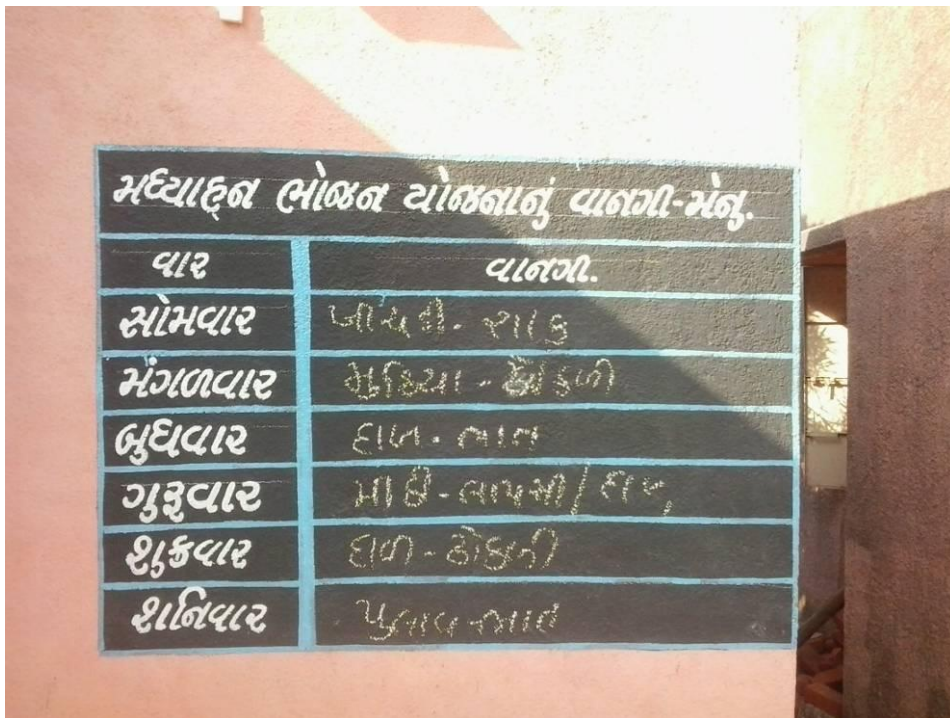 મધ્યાહન ભોજન યોજનાનું વાનગી-મેનુ.
વાર વાનગી.
સોમવાર ખીચડી - શાક
મંગળવાર મુઠિયા -
બુધવાર દાળ - ભાત
ગુરૂવાર લાપસી / દાળ
શુક્રવાર દાળ - ઢોકળી
શનિવાર પુલાવ - ભાત